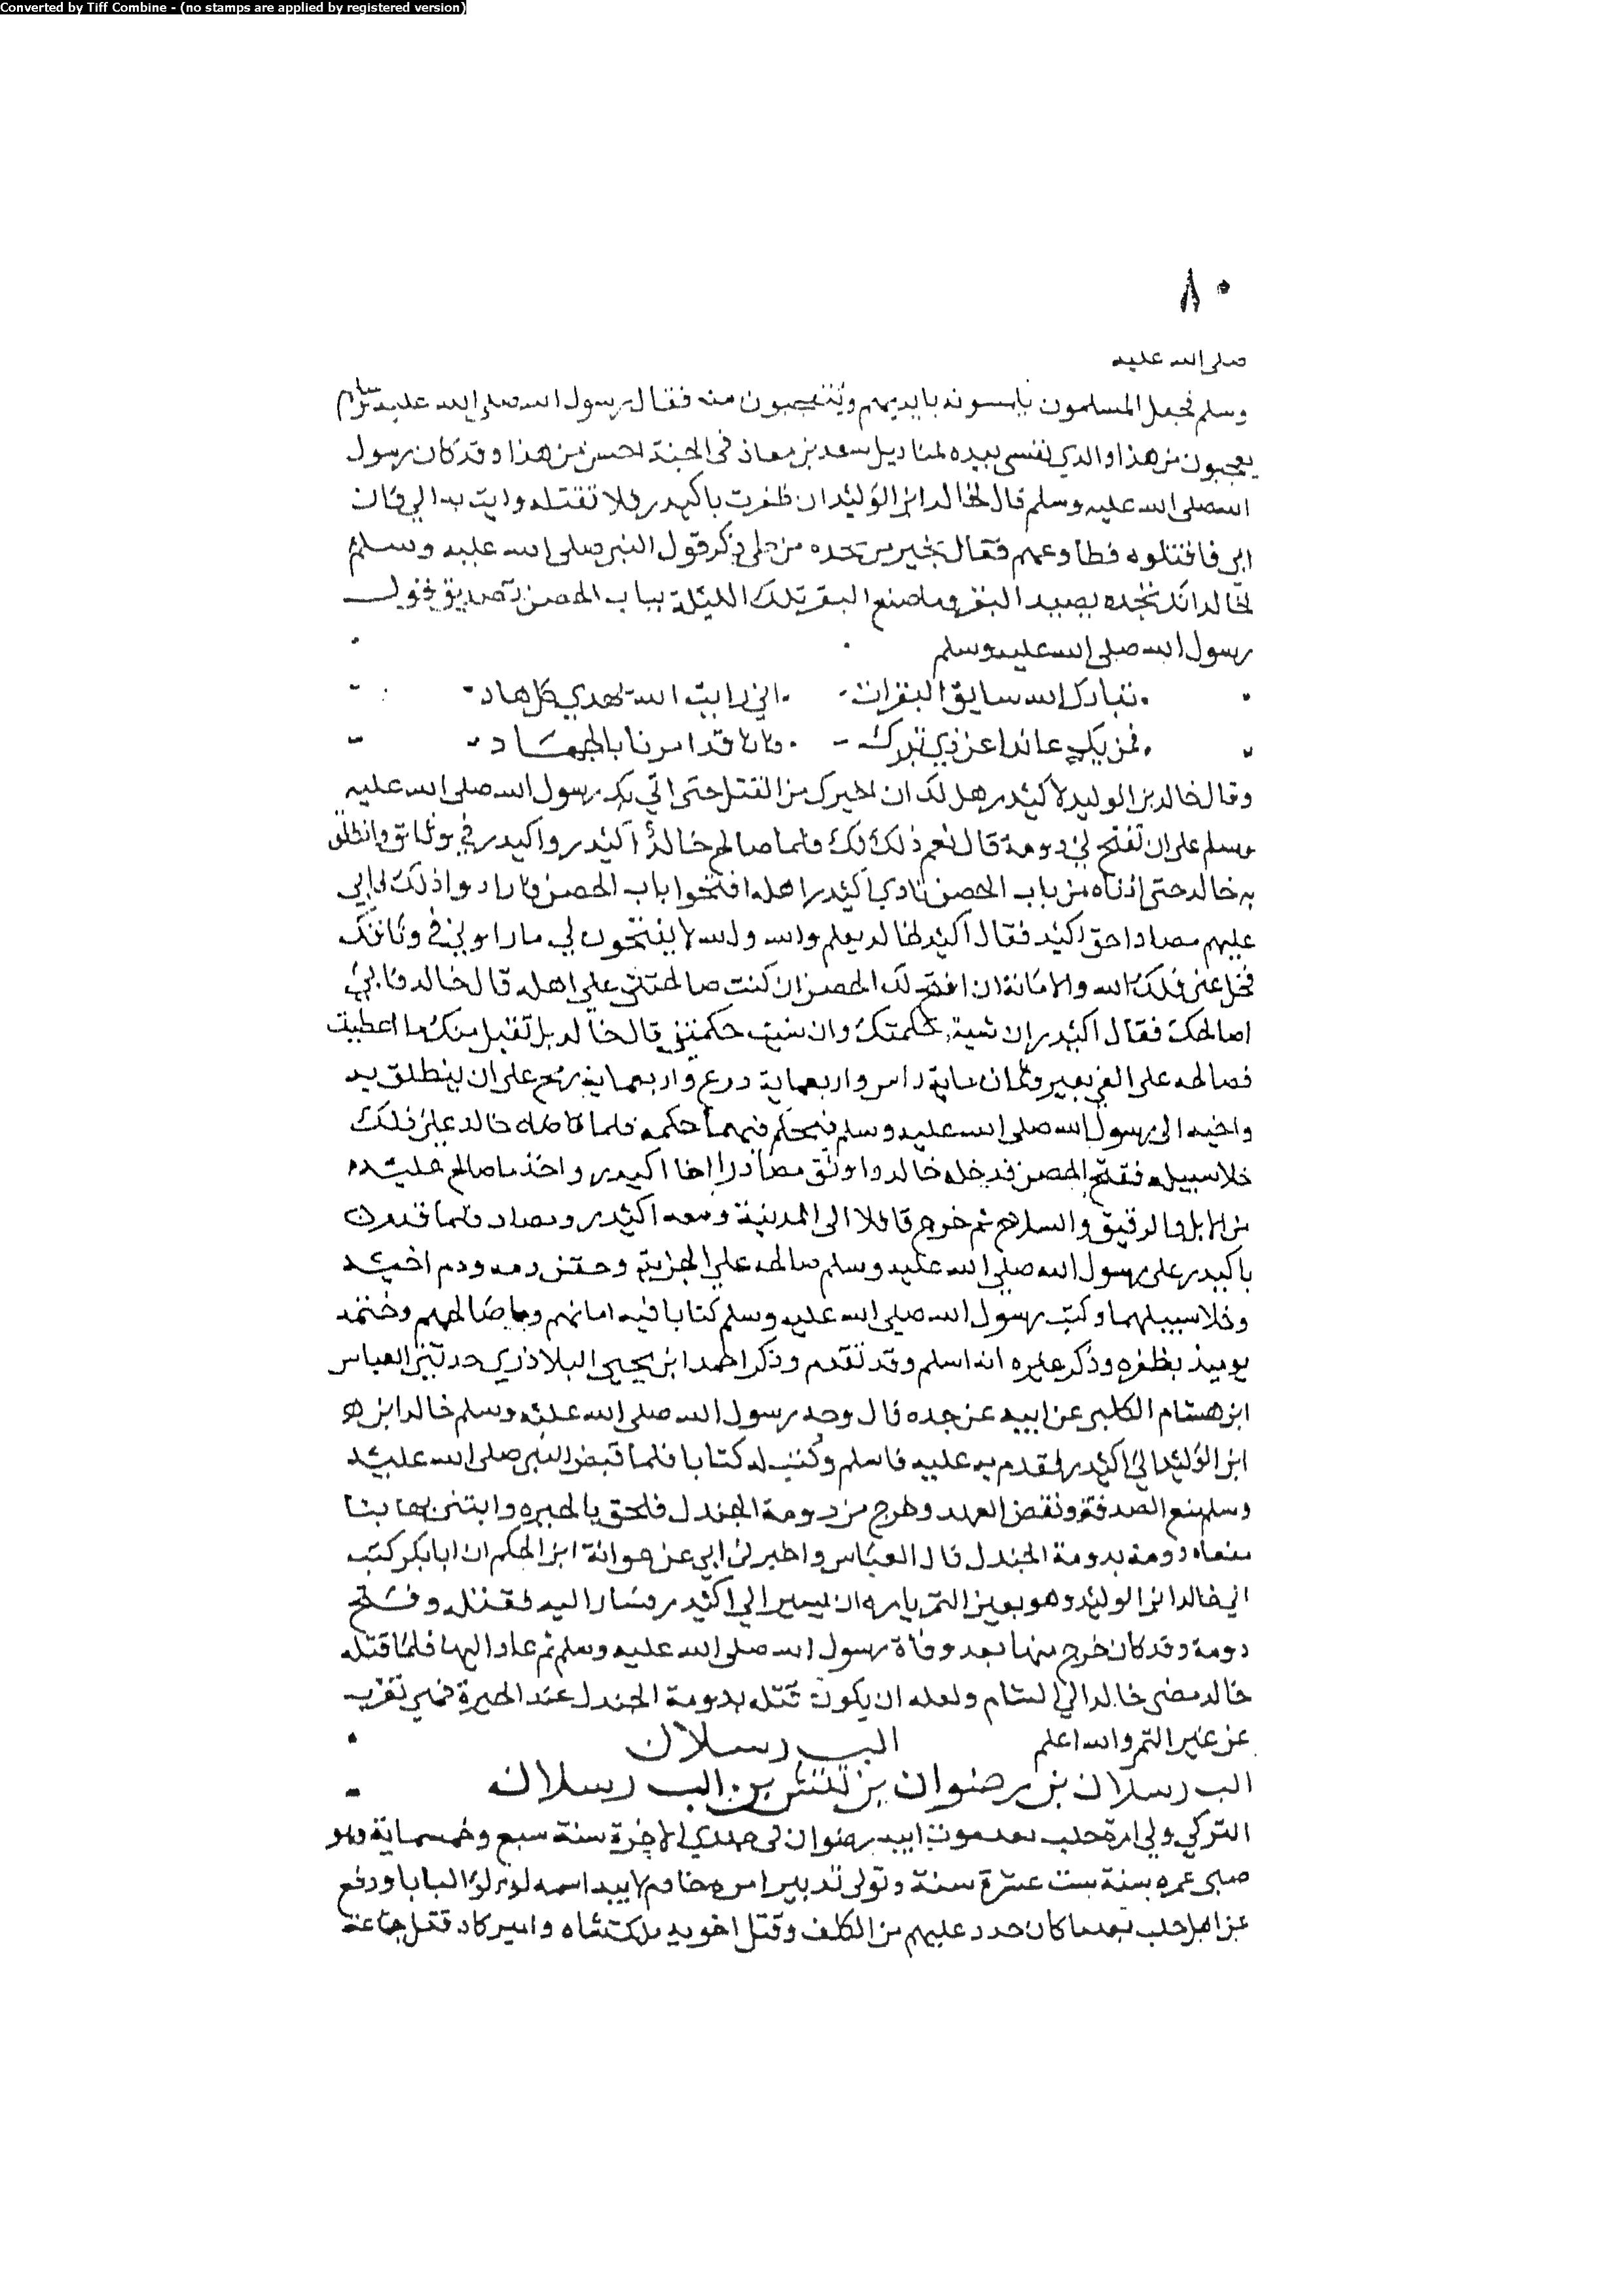 Converted by Tiff Combine - (no stamps are applied by registered version)
٨٠
صلى الله عليه
وسلم فجعل المسلمون يلمسونه بايديهم ويتعجبون منه فقال رسول الله صلى الله عليه وسلم
يعجبون من هذا والذي نفسي بيده لمناديل سعد بن معاذ في الجنة احسن من هذا وقد كان رسول
الله صلى الله عليه وسلم قال لخالد ابن الوليد ان ظفرت باكيدر فلا تقتله وايت به الي فان
ابى فاقتلوه فطاوعهم فقال بجير بن بجده من طي يذكر قول النبي صلى الله عليه وسلم
لخالد انك تجده يصيد البقر وما صنع البقر تلك الليلة بباب الحصن تصديق قول
رسول الله صلى الله عليه وسلم
تبارك الله سايق البقرات اني رايت الله يهدي كل هاد
فمن يك عاندا عن ذي تبوك فانا قد امرنا بالجهاد
وقال خالد بن الوليد لاكيدر هل لك ان اجيرك من القتل حتى اتي بك رسول الله صلى الله عليه
وسلم على ان تفتح لي دومة قال نعم ذلك لك فلما صالح خالد اكيدر واكيدر في وثاق وانطلق
به خالد حتى ادناه من باب الحصن نادى اكيدر اهله افتحوا باب الحصن فارادوا ذلك فابى
عليهم مصاد اخو اكيدر فقال اكيدر لخالد تعلم والله لا يفتحون لي ما راوني في وثاقك
فخل عني فلك الله والامانة ان افتح لك الحصن ان كنت صالحتني على اهله قال خالد فاني
اصالحك فقال اكيدر ان شيت حكمتك وان شيت حكمتني قال خالد بل نقبل منك ما اعطيت
فصالحه على الفي بعير وثمان ماية راس واربعماية درع واربعماية رمح على ان ينطلق به
واخيه الى رسول الله صلى الله عليه وسلم فيحكم فيهما حكمه فلما قاضاه خالد على ذلك
خلا سبيله ففتح الحصن فدخله خالد واوثق مصادا اخا اكيدر واخذ ما صالح عليه
من الابل والرقيق والسلاح ثم خرج قافلا الى المدينة ومعه اكيدر ومصاد فلما قدم
باكيدر على رسول الله صلى الله عليه وسلم صالحه على الجزية وحقن دمه ودم اخيه
وخلا سبيلهما وكتب رسول الله صلى الله عليه وسلم كتابا فيه امانهم وما صالحهم وختمه
يوميذ بظفره وذكر غيره انه اسلم وقد تقدم وذكر احمد ابن يحيى البلاذري حدثني العباس
ابن هشام الكلبي عن ابيه عن جده قال وجه رسول الله صلى الله عليه وسلم خالد ابن
ابن الوليد الى اكيدر فقدم به عليه فاسلم وكتب له كتابا فلما قبض النبي صلى الله عليه
وسلم منع الصدقة ونقض العهد وخرج من دومة الجندل فلحق بالحيره وابتنى بها بنا
سماه دومة بدومة الجندل قال العباس واخبرني ابي عن عوانة ابن الحكم ان ابا بكر كتب
الى خالد ابن الوليد وهو بعين التمر يامره ان يسير الى اكيدر فسار اليه فقتله وفتح
دومة وقد كان خرج منها بعد وفاة رسول الله صلى الله عليه وسلم ثم عاد اليها فلما قتله
خالد مضى خالد الى الشام ولعله ان يكون قتله بدومة الجندل عند الحيرة فهي تقرب
عن عين التمر والله اعلم الب رسلان
الب رسلان بن رضوان بن تتش بن الب رسلان
التركي ولي امرة حلب بعد موت ابيه رضوان في جمادي الاخرة سنة سبع وخمسماية وهو
صبي عمره سنة ست عشرة سنة وتولى تدبير امره خادم لابيه اسمه لولو البابا ورفع
عن اهل حلب بعض ما كان جدد عليهم من الكلف وقتل اخويه ملكتشاه واميركا وقتل جماعة